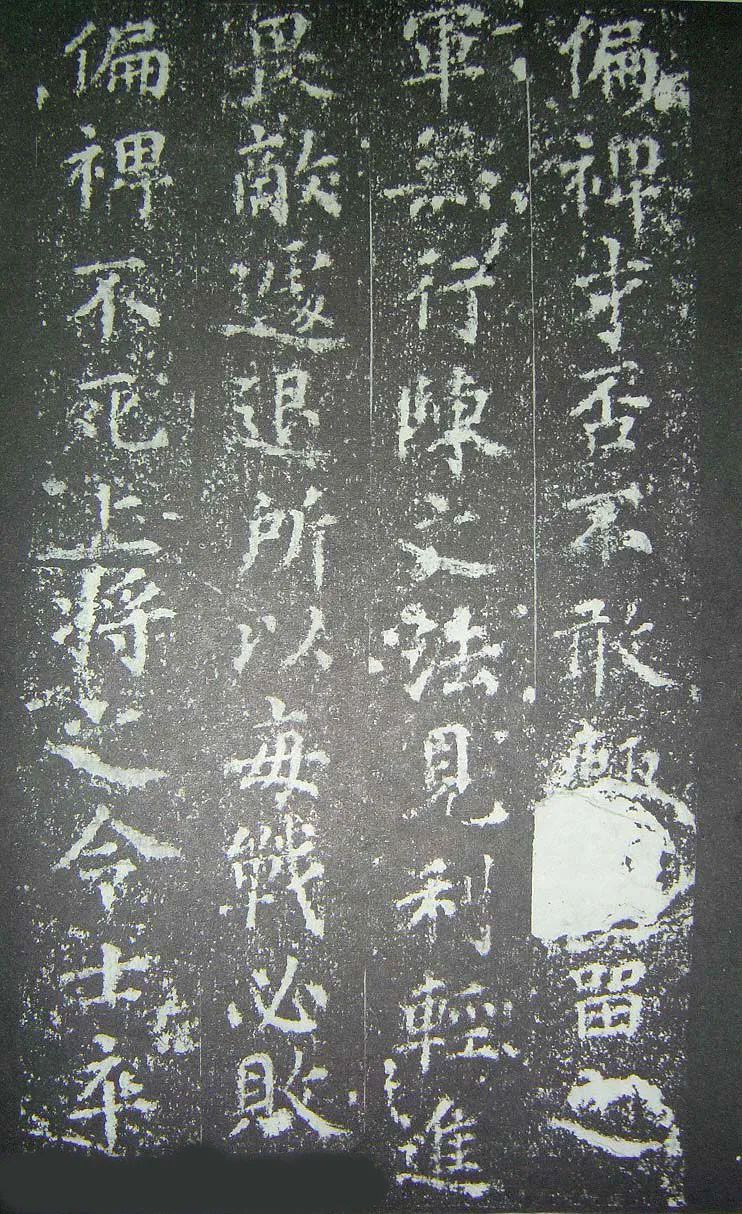 偏裨才否不敢輕留
軍無行陳之法見利輕進
畏敵遽退所以每戰必敗
偏裨不死上將之令士卒